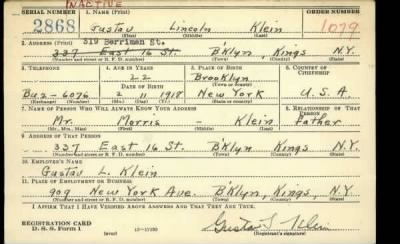 INACTIVE
SERIAL NUMBER 1. NAME (Print) ORDER NUMBER
2868 Gustav Lincoln Klein 1079
(First) (Middle) (Last)
319 Berriman St.
2. ADDRESS (Print)
337 East 16 St. B'Klyn, Kings N.Y.
(Number and street or R. F. D. number) (Town) (County) (State)
3. TELEPHONE 4. AGE IN YEARS 5. PLACE OF BIRTH 6. COUNTRY OF CITIZENSHIP
22 Brooklyn
DATE OF BIRTH (Town or county)
Bu2-6076 2 11 1918 New York U.S.A.
(Exchange) (No.) (Mo.) (Day) (Yr.) (State or country)
7. NAME OF PERSON WHO WILL ALWAYS KNOW YOUR ADDRESS 8. RELATIONSHIP OF THAT PERSON
Mr. Morris - Klein Father
(Mr., Mrs., Miss) (First) (Middle) (Last)
9. ADDRESS OF THAT PERSON
337 East 16 St. B'Klyn Kings N.Y.
(Number and street or R. F. D. number) (Town) (County) (State)
10. EMPLOYER'S NAME
Gustav L. Klein
11. PLACE OF EMPLOYMENT OR BUSINESS
909 New York Ave. B'Klyn, Kings, N.Y.
(Number and street or R. F. D. number) (Town) (County) (State)
I AFFIRM THAT I HAVE VERIFIED ABOVE ANSWERS AND THAT THEY ARE TRUE.
REGISTRATION CARD
D. S. S. Form 1 (over) Gustav L Klein
(Registrant's signature)